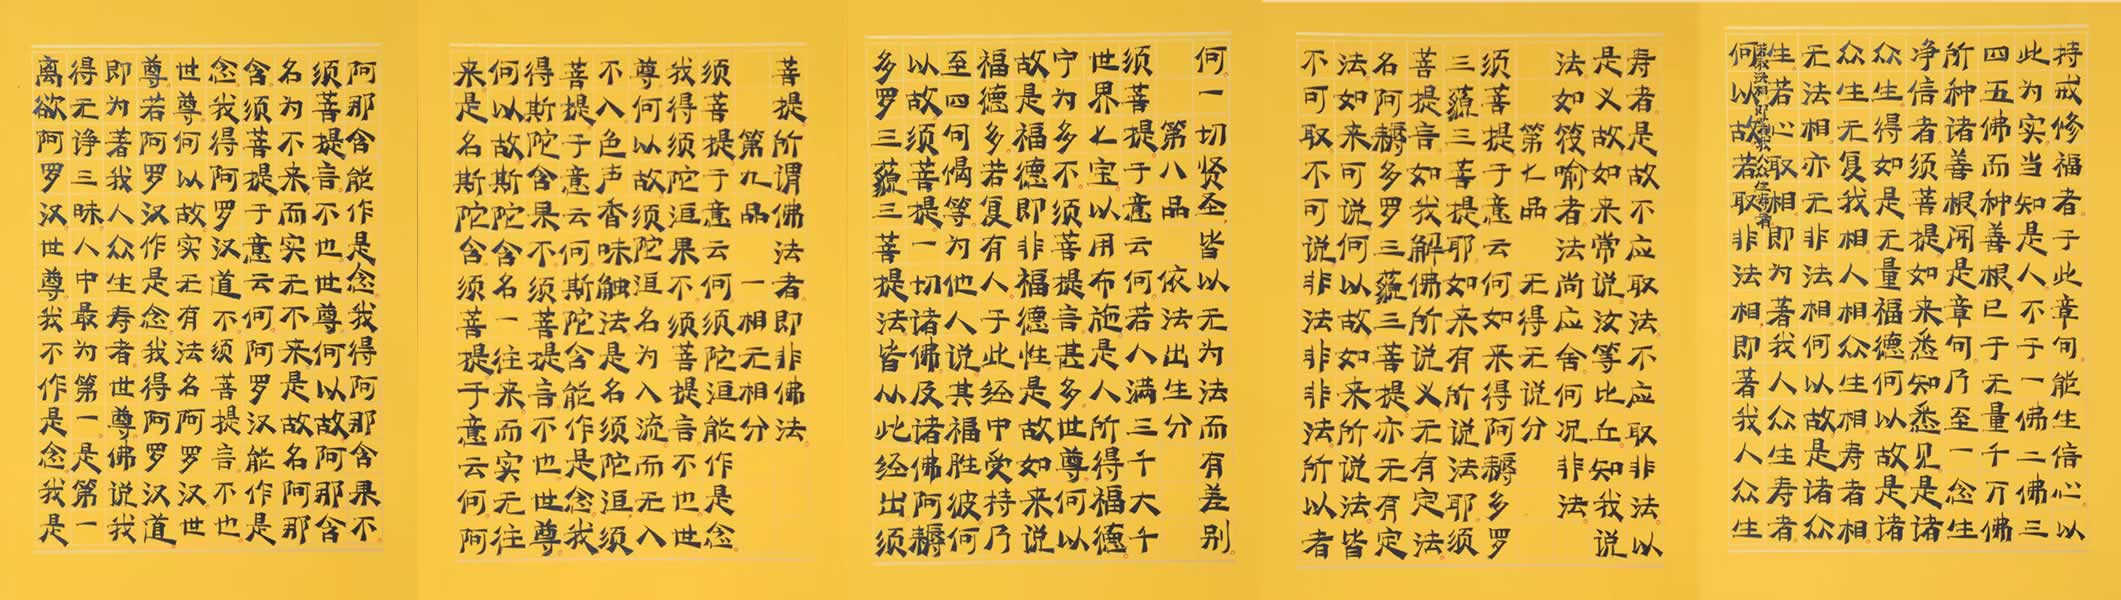 持戒修福者于此章句能生信心以
此为实当知是人不于一佛二佛三
四五佛而种善根已于无量千万佛
所种诸善根闻是章句乃至一念生
净信者须菩提如来悉知悉见是诸
众生得如是无量福德何以故是诸
众生无复我相人相众生相寿者相
无法相亦无非法相何以故是诸众
生若心取相即为著我人众生寿者
何以故若取非法相即著我人众生
寿者是故不应取法不应取非法以
是义故如来常说汝等比丘知我说
法如筏喻者法尚应舍何况非法
第七品 无得无说分
须菩提于意云何如来得阿耨多罗
三藐三菩提耶如来有所说法耶须
菩提言如我解佛所说义无有定法
名阿耨多罗三藐三菩提亦无有定
法如来可说何以故如来所说法皆
不可取不可说非法非非法所以者
何一切贤圣皆以无为法而有差别
第八品 依法出生分
须菩提于意云何若人满三千大千
世界七宝以用布施是人所得福德
宁为多不须菩提言甚多世尊何以
故是福德即非福德性是故如来说
福德多若复有人于此经中受持乃
至四句偈等为他人说其福胜彼何
以故须菩提一切诸佛及诸佛阿耨
多罗三藐三菩提法皆从此经出须
菩提所谓佛法者即非佛法
第九品 一相无相分
须菩提于意云何须陀洹能作是念
我得须陀洹果不须菩提言不也世
尊何以故须陀洹名为入流而无入
不入色声香味触法是名须陀洹须
菩提于意云何斯陀含能作是念我
得斯陀含果不须菩提言不也世尊
何以故斯陀含名一往来而实无往
来是名斯陀含须菩提于意云何阿
阿那含能作是念我得阿那含果不
须菩提言不也世尊何以故阿那含
名为不来而实无不来是故名阿那
含须菩提于意云何阿罗汉能作是
念我得阿罗汉道不须菩提言不也
世尊何以故实无有法名阿罗汉世
尊若阿罗汉作是念我得阿罗汉道
即为著我人众生寿者世尊佛说我
得无诤三昧人中最为第一是第一
离欲阿罗汉世尊我不作是念我是